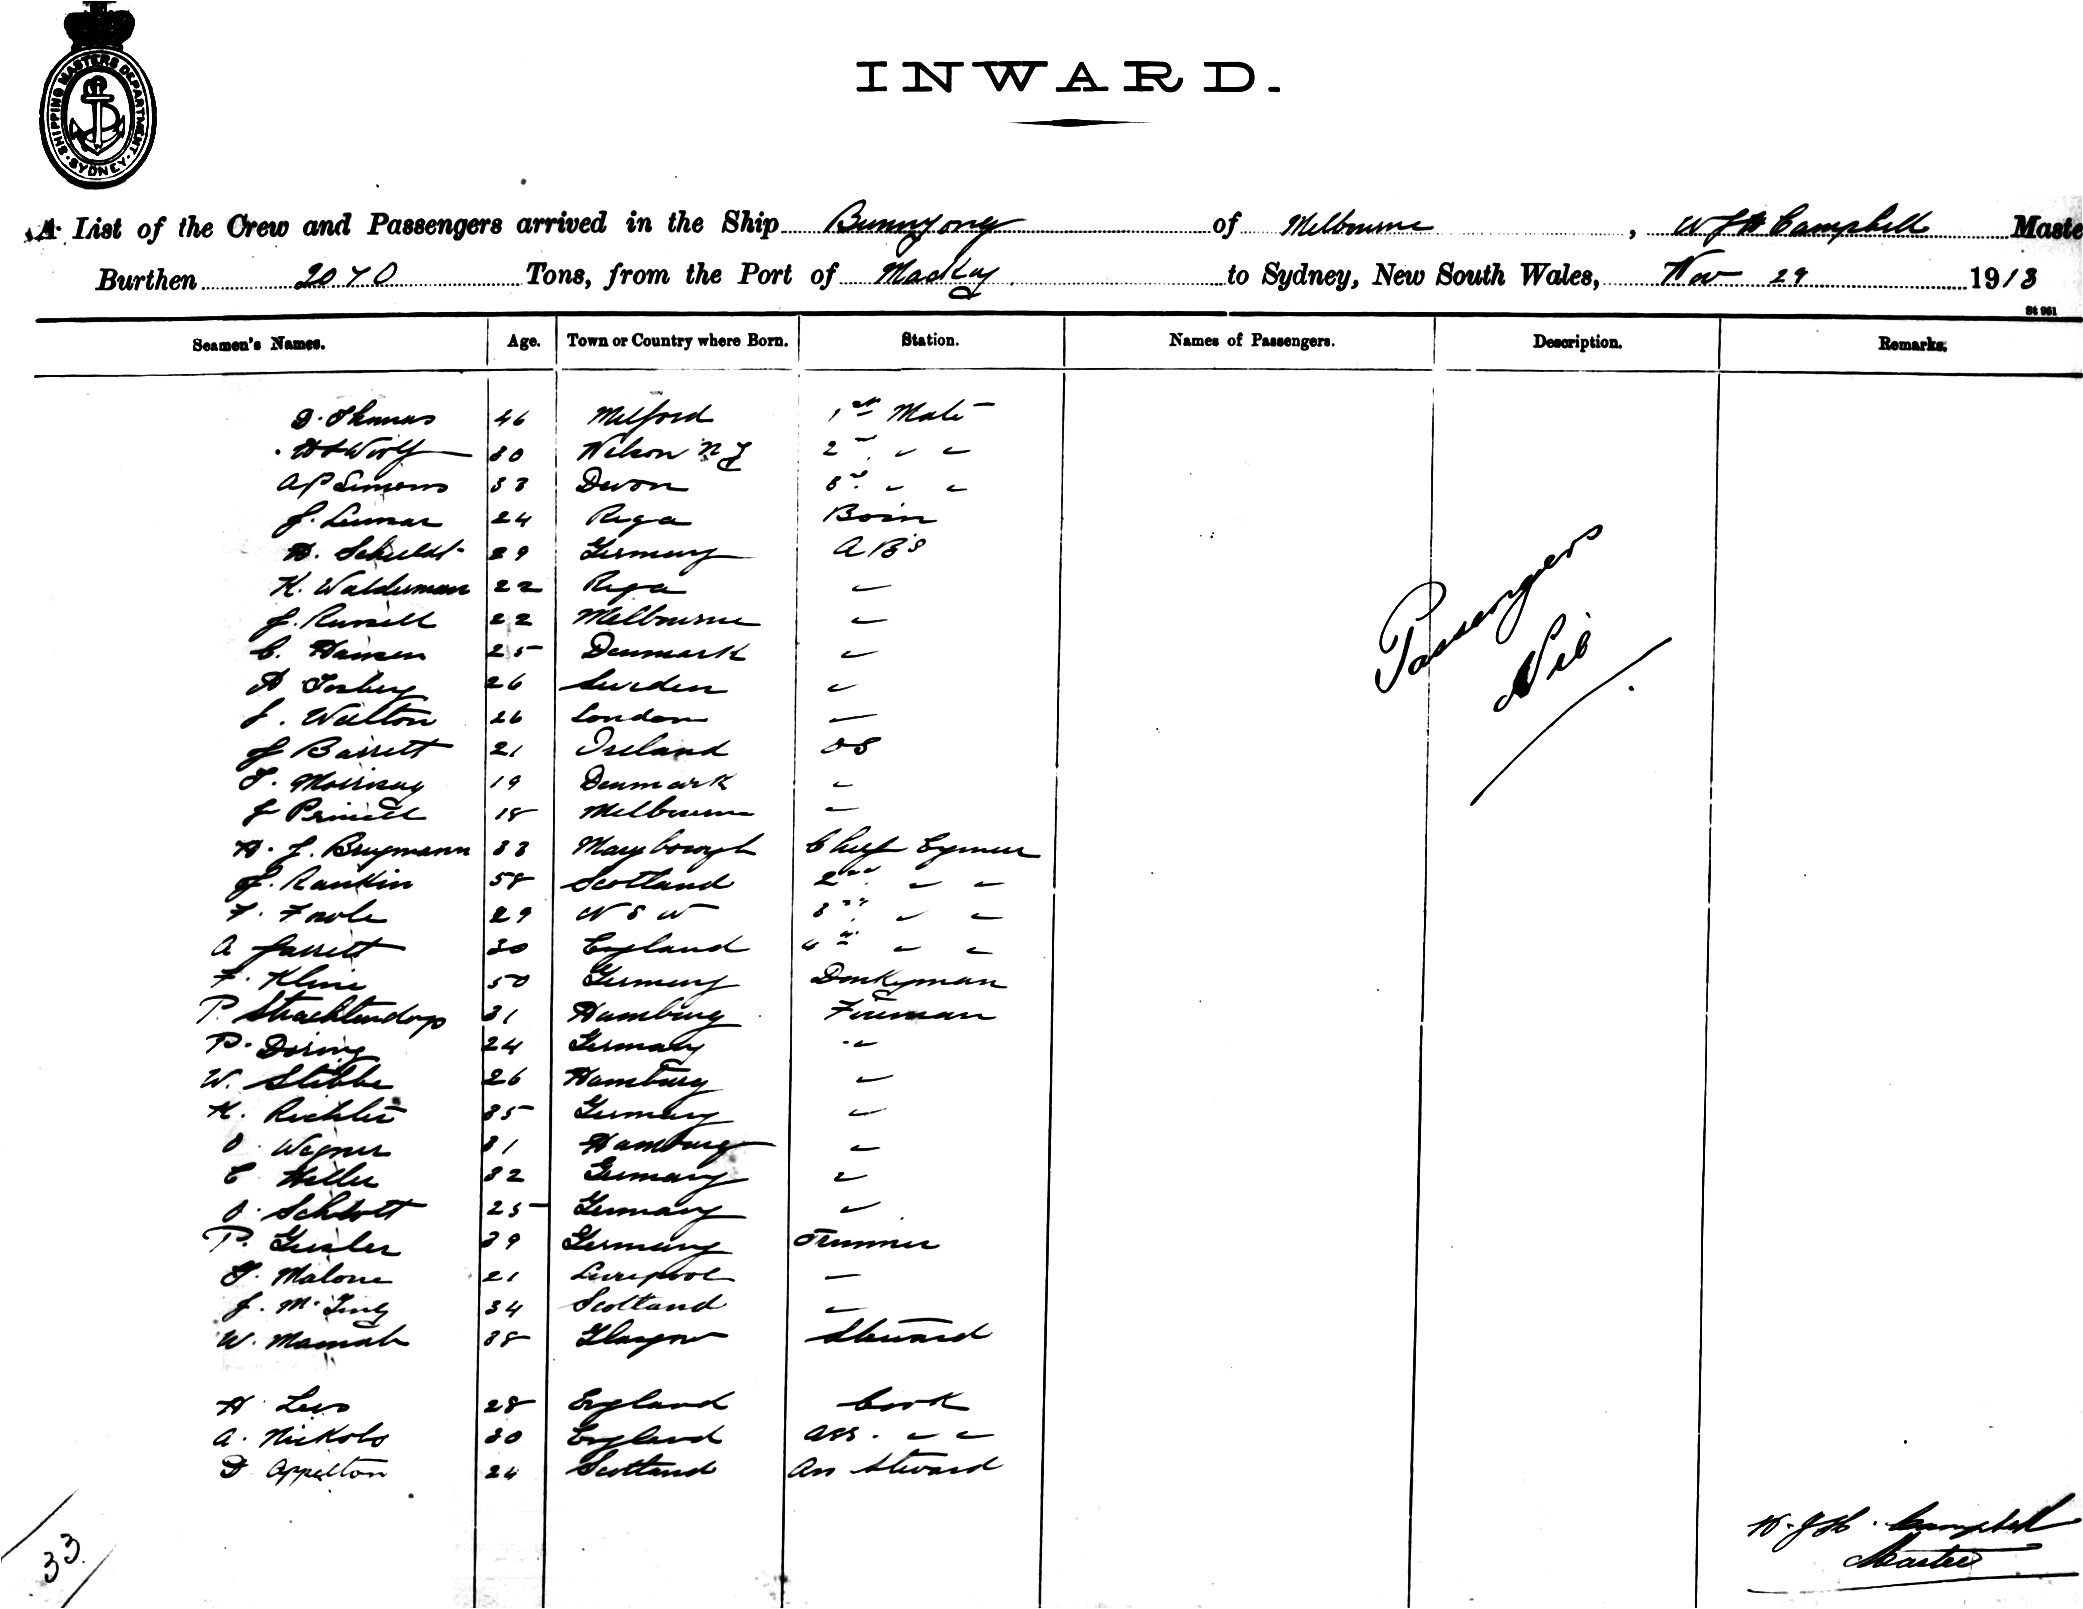 SHIPPING MASTERS DEPARTMENT · SYDNEY ·
INWARD.
A List of the Crew and Passengers arrived in the Ship Bunnyong of Melbourne, W J H Campbell Maste
Burthen 2070 Tons, from the Port of Mackay to Sydney, New South Wales, Nov 29 1913
St 961
Seamen's Names. Age. Town or Country where Born. Station. Names of Passengers. Description. Remarks.
D. Thomas 46 Milford 1st Mate
Woolf 30 Nelson N Z 2nd " "
A P Simons 33 Devon 3rd " "
J. 24 Riga Bosn
H. Schuldt 29 Germany A B S
K. Walderman 22 Riga "
J. Russell 22 Melbourne "
C. Hansen 25 Denmark "
A 26 Sweden "
J. Walton 26 London "
J Barrett 21 Ireland O S
T. 19 Denmark "
J 18 Melbourne "
H. J. Brugmann 33 Maryborough Chief Engineer
J. Rankin 58 Scotland 2nd " "
F. Fowle 29 N S W 3rd " "
A Jarrett 30 England 4th " "
F. Kline 50 Germany Donkeyman
P. Strachtendorp 31 Hamburg Fireman
P. Doring 24 Germany "
W. Stibbe 26 Hamburg "
K. Richter 35 Germany "
O. Wegner 31 Hamburg "
C Heller 32 Germany "
O. Schlott 25 Germany "
P. Geisler 39 Germany Trimmer
T. Malone 21 Liverpool "
J. 34 Scotland "
W. 38 Glasgow Steward
H Lees 28 England Cook
A. Nickols 30 England ass. " "
D Appelton 24 Scotland Ass Steward
Passengers
Nil
33
W. J H. Campbell
Master